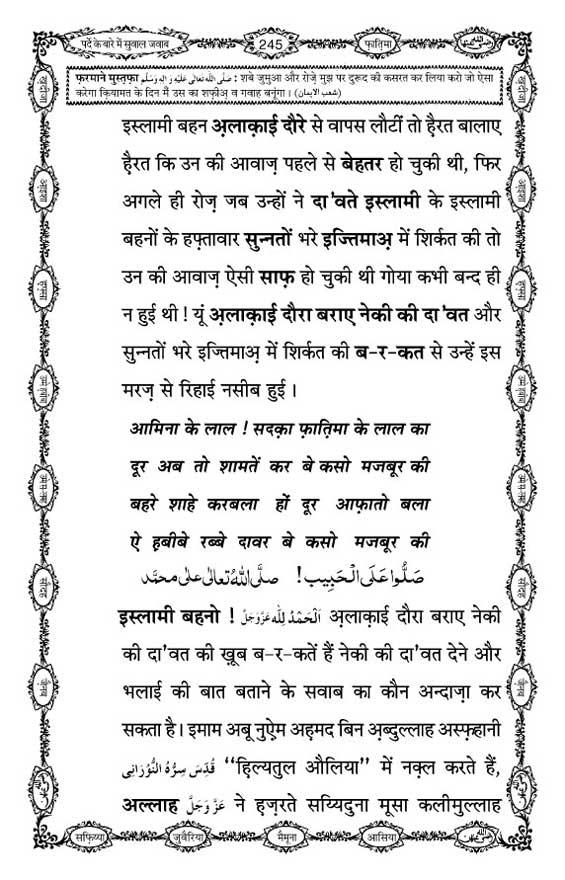 पर्दे के बारे में सुवाल जवाब
245
फ़ातिमा
फ़रमाने मुस्तफ़ा صلى الله تعالى عليه واله وسلم : शबे जुमुआ और रोज़े मुझ पर दुरूद की कसरत कर लिया करो जो ऐसा
करेगा क़ियामत के दिन मैं उस का शफ़ीअ़ व गवाह बनूंगा । (شعب الايمان)
इस्लामी बहन अ़लाक़ाई दौरे से वापस लौटीं तो ह़ैरत बालाए
ह़ैरत कि उन की आवाज़ पहले से बेहतर हो चुकी थी, फिर
अगले ही रोज़ जब उन्हों ने दा'वते इस्लामी के इस्लामी
बहनों के हफ़्तावार सुन्नतों भरे इज्तिमाअ़ में शिर्कत की तो
उन की आवाज़ ऐसी साफ़ हो चुकी थी गोया कभी बन्द ही
न हुई थी ! यूं अ़लाक़ाई दौरा बराए नेकी की दा'वत और
सुन्नतों भरे इज्तिमाअ़ में शिर्कत की ब-र-कत से उन्हें इस
मरज़ से रिहाई नसीब हुई ।
आमिना के लाल ! सदक़ा फ़ातिमा के लाल का
दूर अब तो शामतें कर बे कसो मजबूर की
बहरे शाहे करबला हों दूर आफ़ातो बला
ऐ ह़बीबे रब्बे दावर बे कसो मजबूर की
صَلُّوا عَلَى الْحَبِيب! صلَّى اللهُ تعالى على محمَّد
इस्लामी बहनो ! اَلْحَمْدُ لِلّٰه عَزَّوَجَلَّ अ़लाक़ाई दौरा बराए नेकी
की दा'वत की ख़ूब ब-र-कतें हैं नेकी की दा'वत देने और
भलाई की बात बताने के सवाब का कौन अन्दाज़ा कर
सकता है । इमाम अबू नुऐम अह़मद बिन अ़ब्दुल्लाह अस्फ़हानी
قُدِّسَ سِرُّهُ النُّوْرَانِى “हिल्यतुल औलिया” में नक़्ल करते हैं,
अल्लाह عَزَّوَجَلَّ ने ह़ज़रते सय्यिदुना मूसा कलीमुल्लाह
सफ़िय्या
जुवैरिया
मैमूना
आसिया